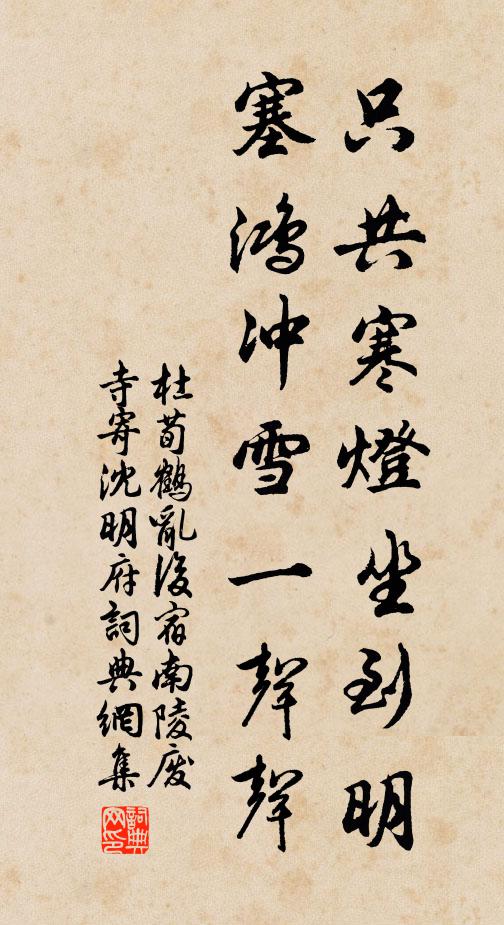 只共寒燈坐到明
塞鴻冲雪一聲聲
杜荀鶴亂後宿南陵廢
寺寄沈明府詞典網集
詞典
网印